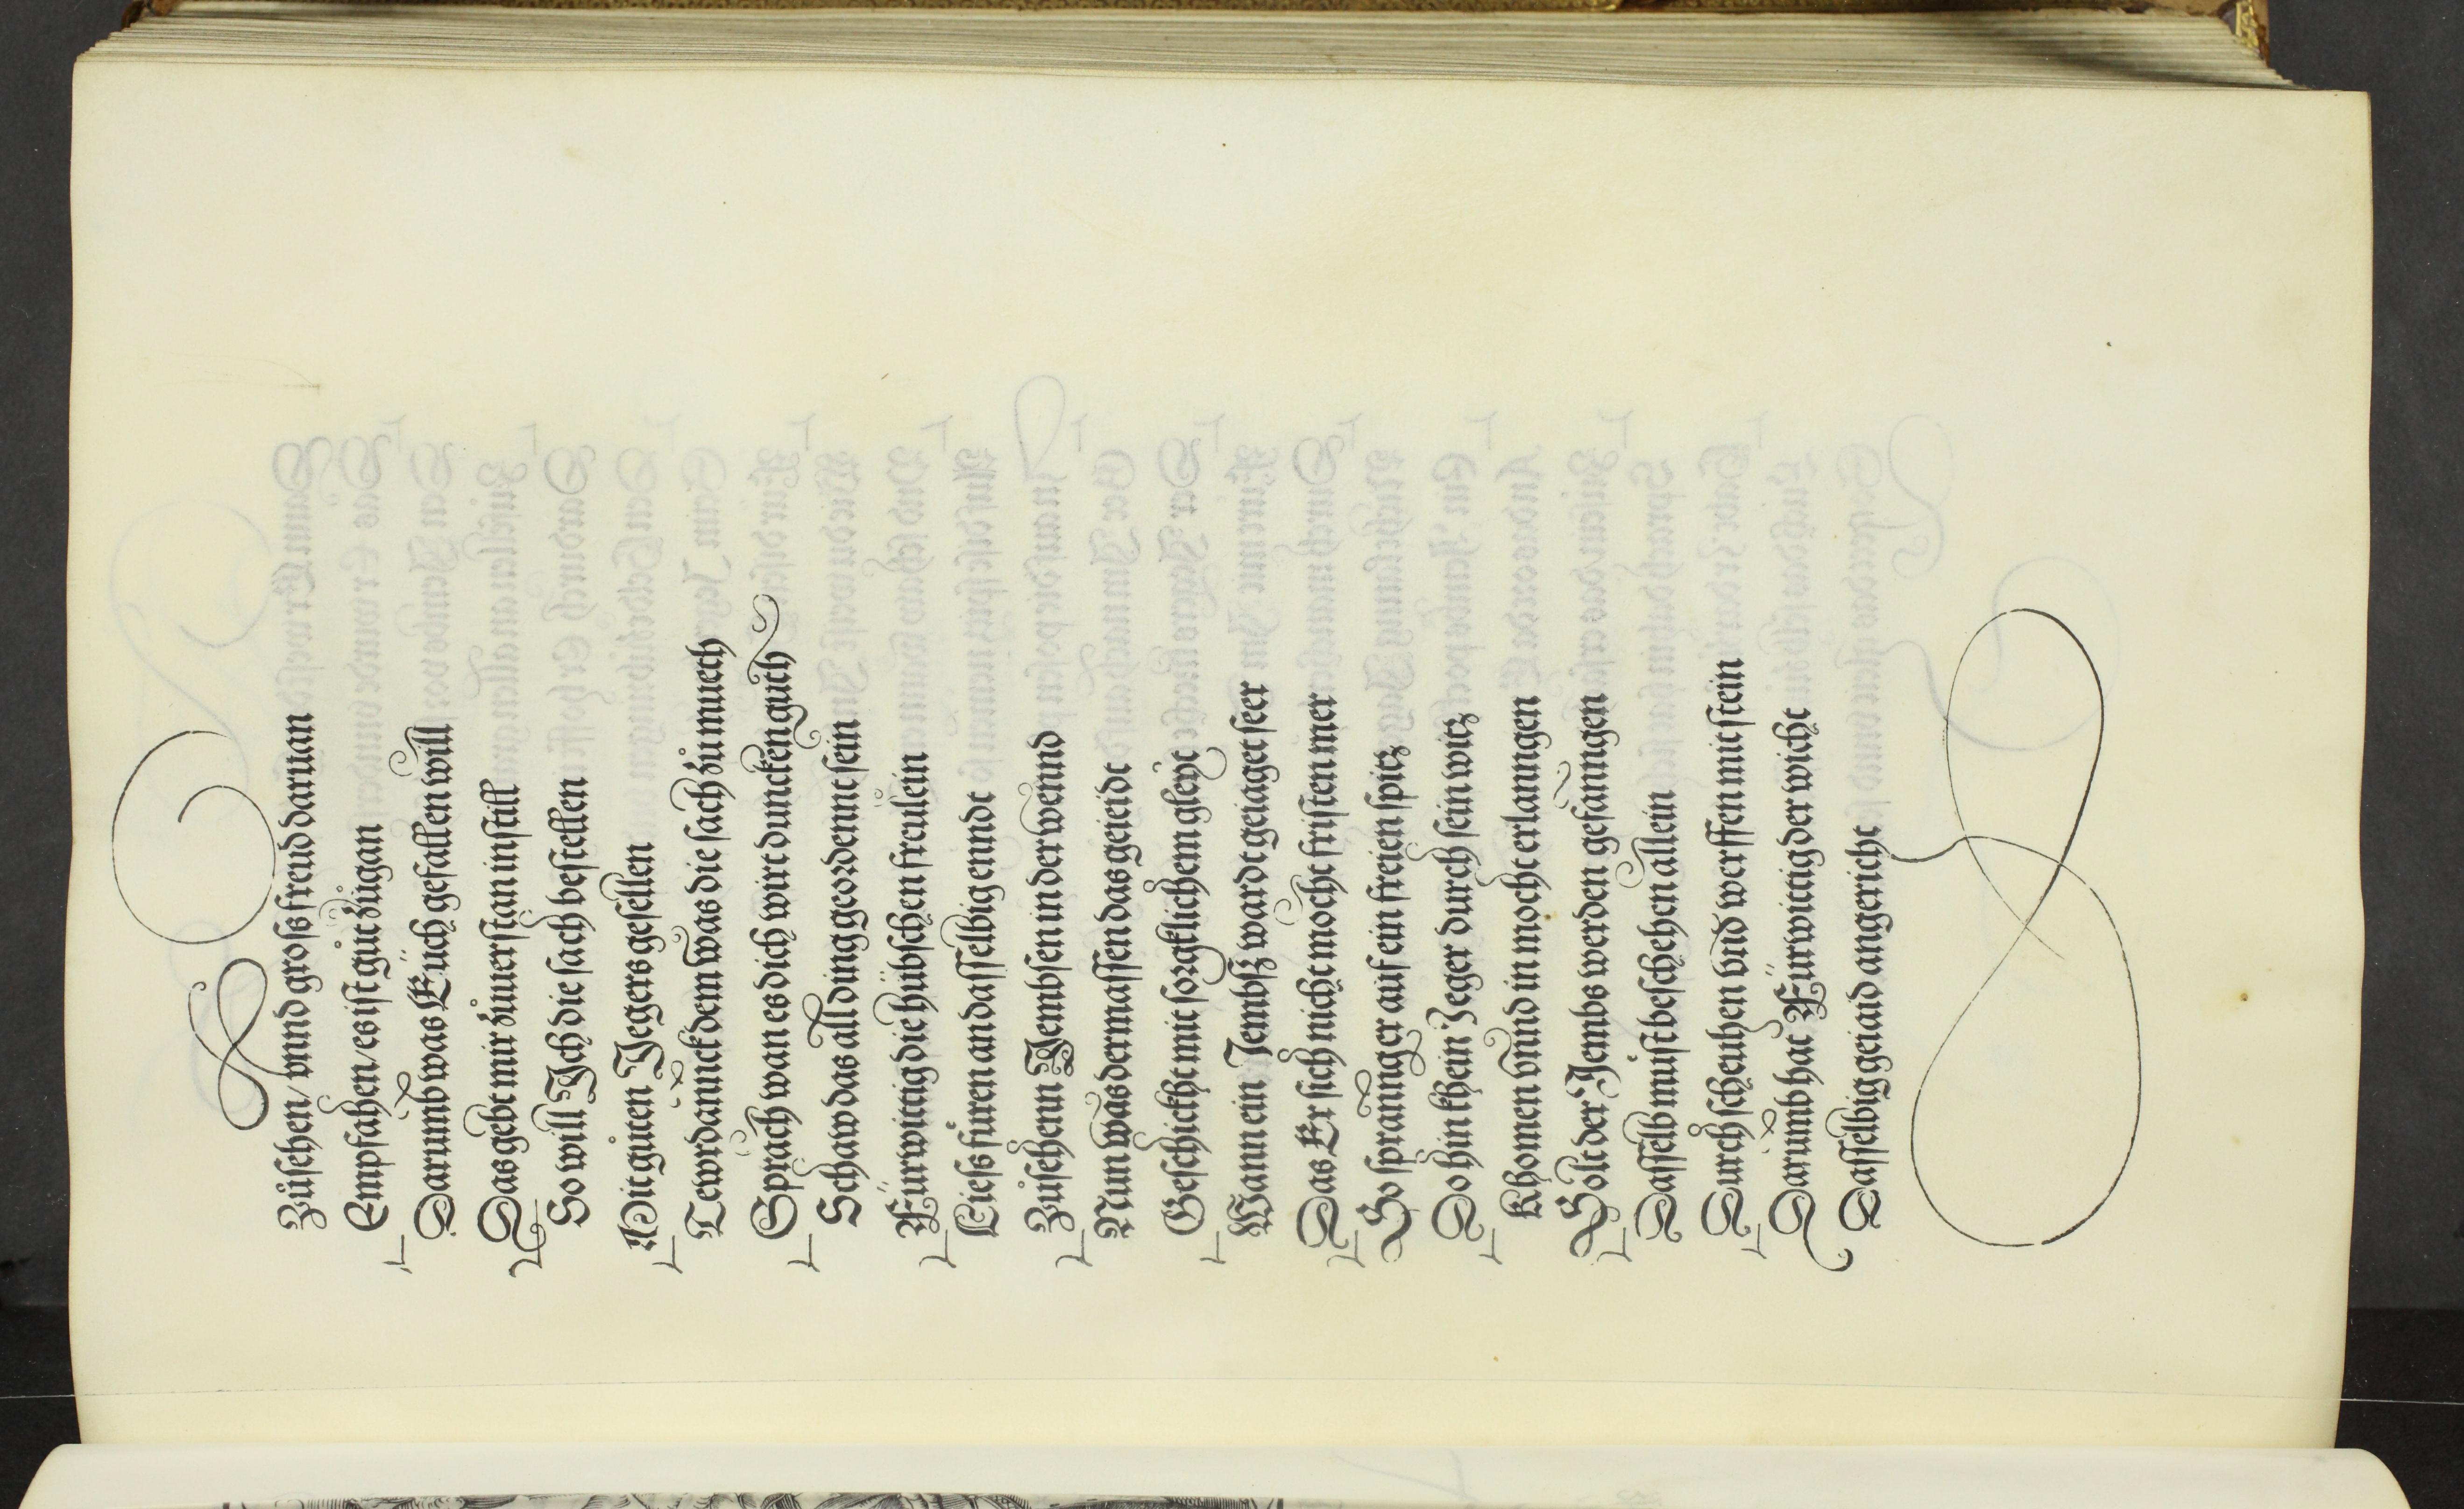 Zůsehen/ vnnd groſs freud daruan
Empfahen/ es iſt gůt zůgan
Darumb was Eüch gefallen will
Das gebt mir zůuerſtan in ſtill
So will Ich die ſach beſtellen
Mit gůten Jegers geſellen
Tewrdannck dem was die ſach zů můeth
Sprach wan es dich wirt duncken gůth
Schaw das all ding geordennt ſein
Fürwittig die hübſchen freulein
Lieſs fůren an daſſelbig enndt
Zůſehenn Jembſen in der wennd
Nun was dermaſſen das geieidt
Geſchickht mit ſorgklichem gleyt
Wann ein Jembſz wardt geiaget ſeer
Das Er ſich nicht mocht friſten mer
So ſpranng er auf ein freien ſpitz
Do hin khein Jeger durch ſein witz
Khomen vnnd in mocht erlanngen
Solt der Jembs werden gefanngen
Daſſelb můſt beſchehen allein
Durch ſcheuhen vnd werffen mit ſtein
Darumb hat Fürwittig der wicht
Daſſelbig geiaid angericht